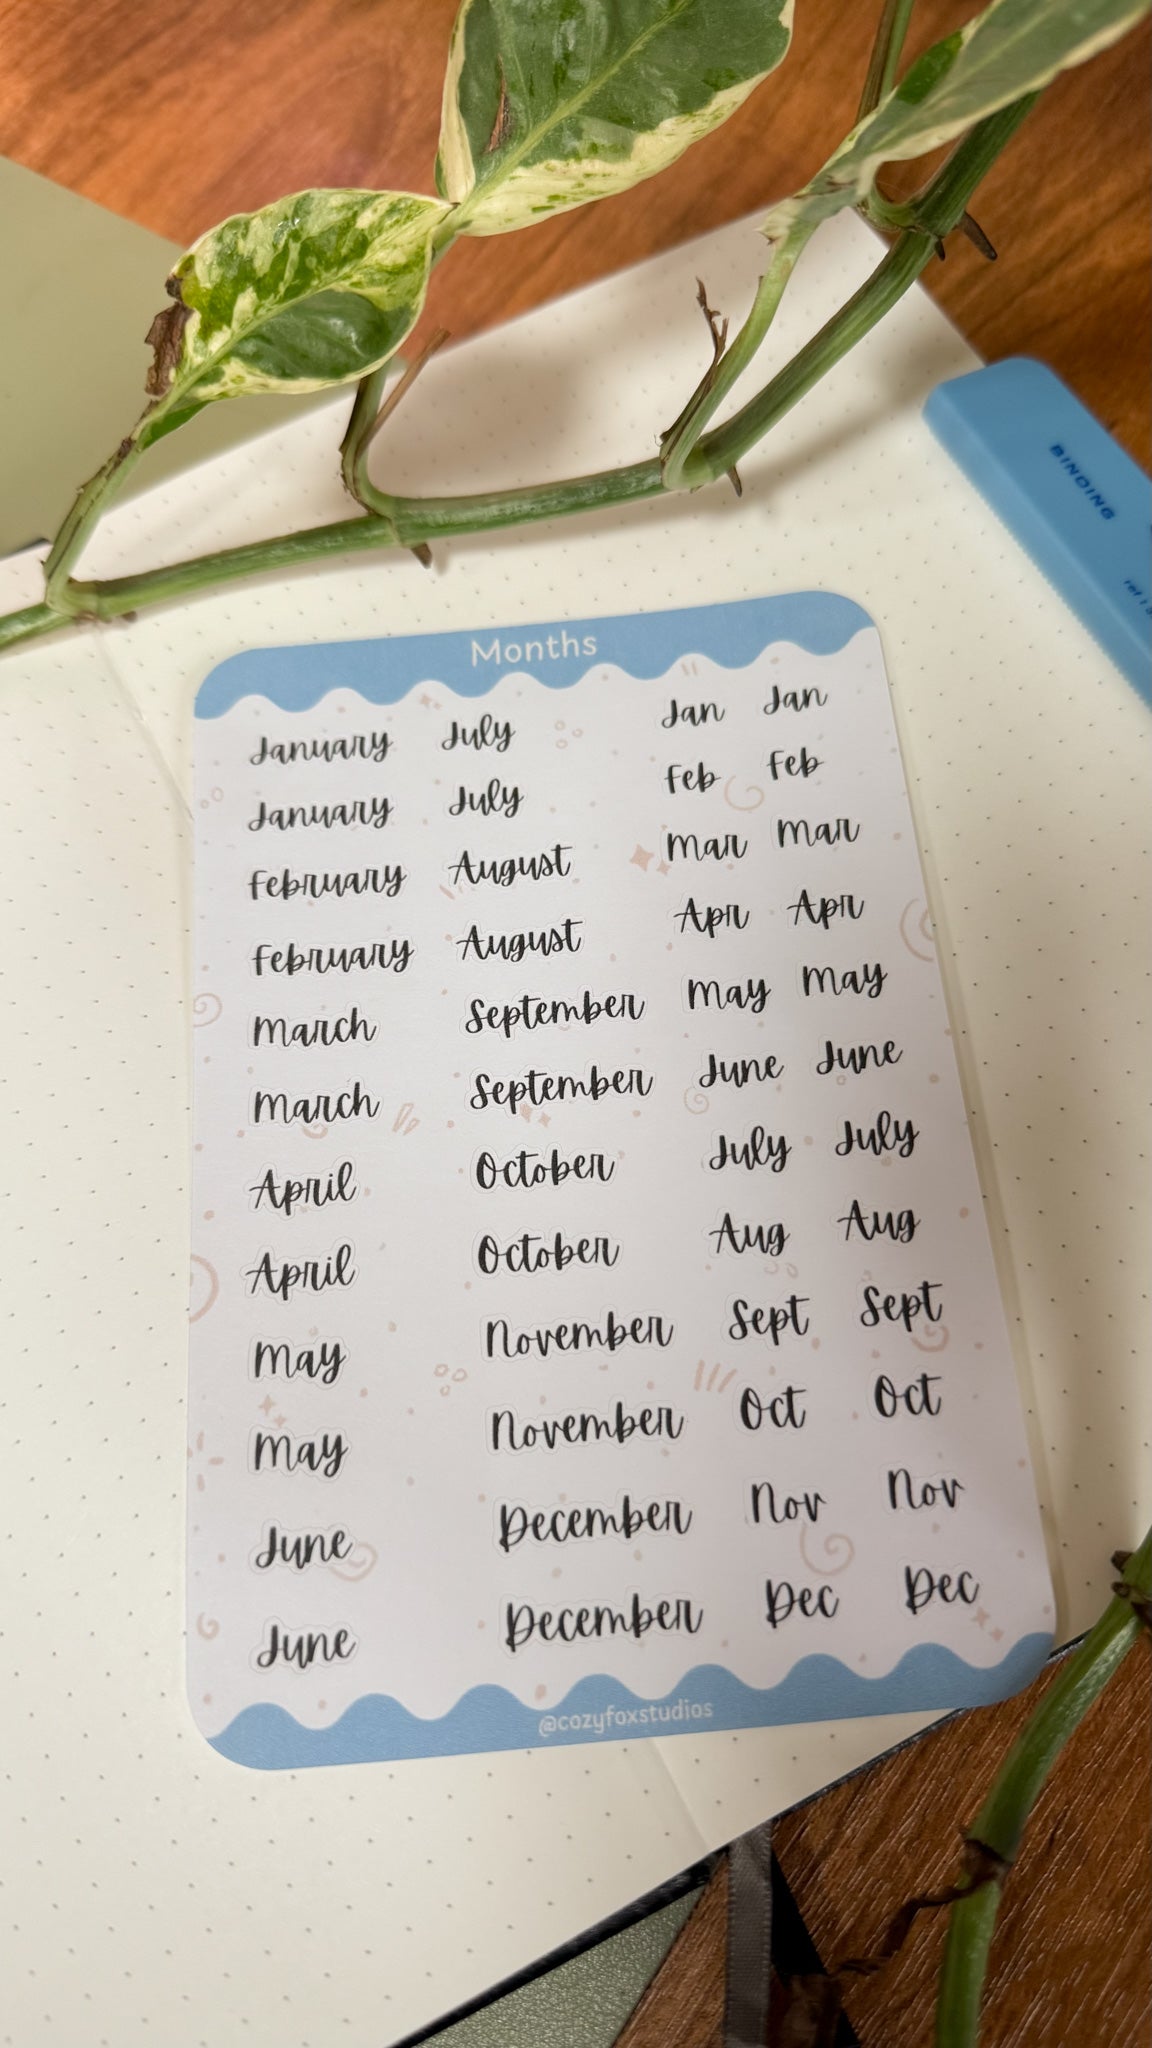 BINDING
Months
January July Jan Jan
January July Feb Feb
February August Mar Mar
February August Apr Apr
March September May May
March September June June
April October July July
April October Aug Aug
May November Sept Sept
May November Oct Oct
June December Nov Nov
June December Dec Dec
@cozyfoxstudios